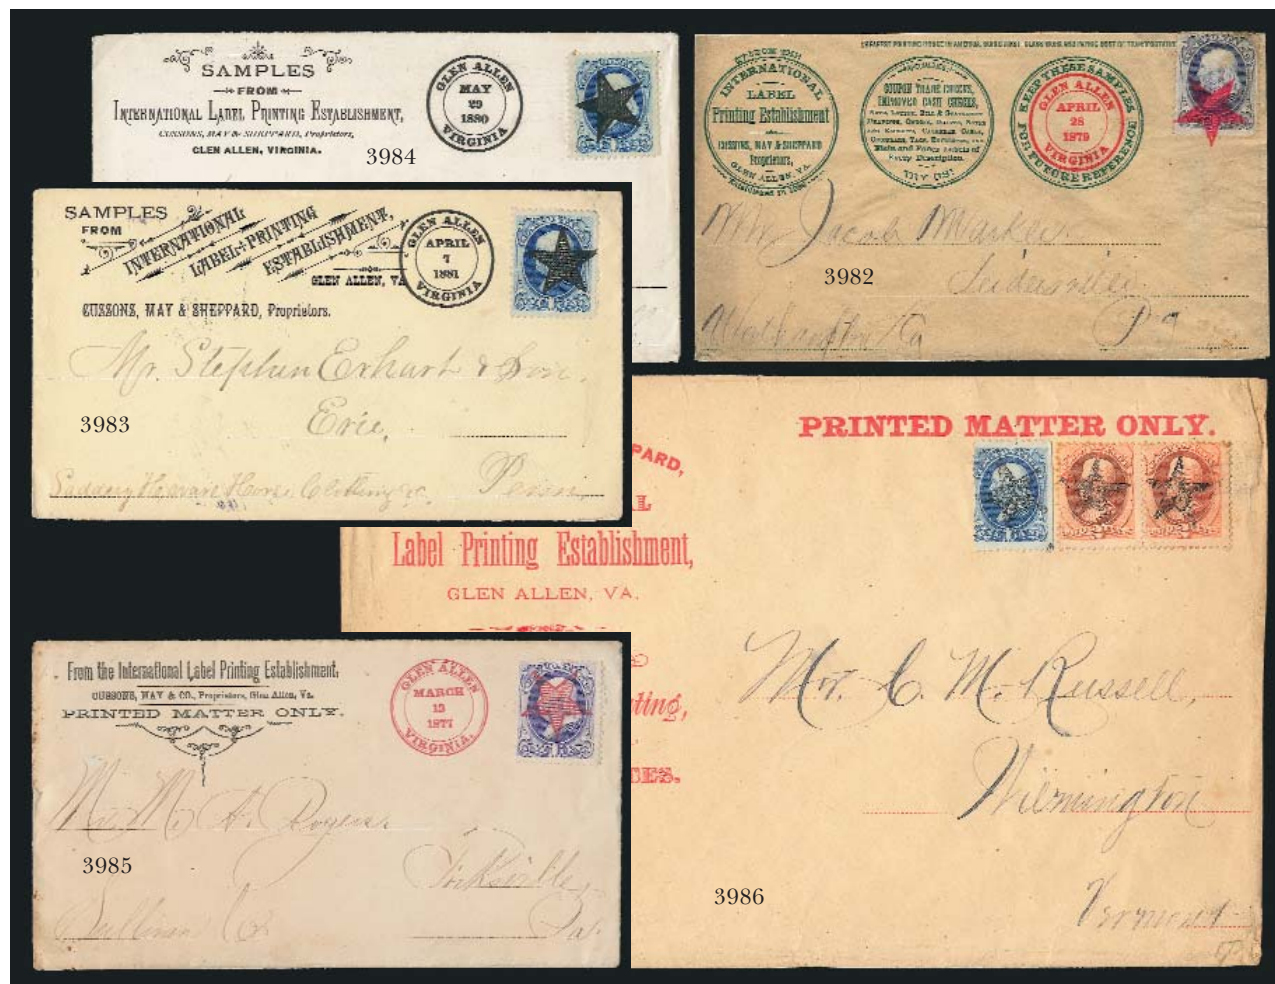 SAMPLES
FROM
INTERNATIONAL LABEL PRINTING ESTABLISHMENT,
CUSSONS, MAY & SHEPPARD, Proprietors,
GLEN ALLEN, VIRGINIA.
GLEN ALLEN
MAY
29
1880
VIRGINIA
3984
INTERNATIONAL
LABEL
Printing Establishment
CUSSONS, MAY & SHEPPARD
Proprietors,
GLEN ALLEN, VA.
COUPON TRADE CHECKS,
IMPROVED CASH CHECKS,
Every Description.
KEEP THESE SAMPLES
FOR FUTURE REFERENCE
GLEN ALLEN
APRIL
28
1879
VIRGINIA
Mr. Jacob
3982
SAMPLES
FROM
INTERNATIONAL
LABEL PRINTING
ESTABLISHMENT,
GLEN ALLEN, VA
CUSSONS, MAY & SHEPPARD, Proprietors.
GLEN ALLEN
APRIL
7
1881
VIRGINIA
Mr. Stephen Erhart & Son.
3983
Erie,
Penn.
PRINTED MATTER ONLY.
PARD,
AL
Label Printing Establishment,
GLEN ALLEN, VA.
ting,
CES.
Mr. C. M. Russell,
Wilmington
Vermont
3986
From the International Label Printing Establishment.
CUSSONS, MAY & CO., Proprietors, Glen Allen, Va.
PRINTED MATTER ONLY.
GLEN ALLEN
MARCH
13
1877
VIRGINIA.
Mr. M. A. Rogers.
3985
Forksville,
Sullivan Co.
Pa.